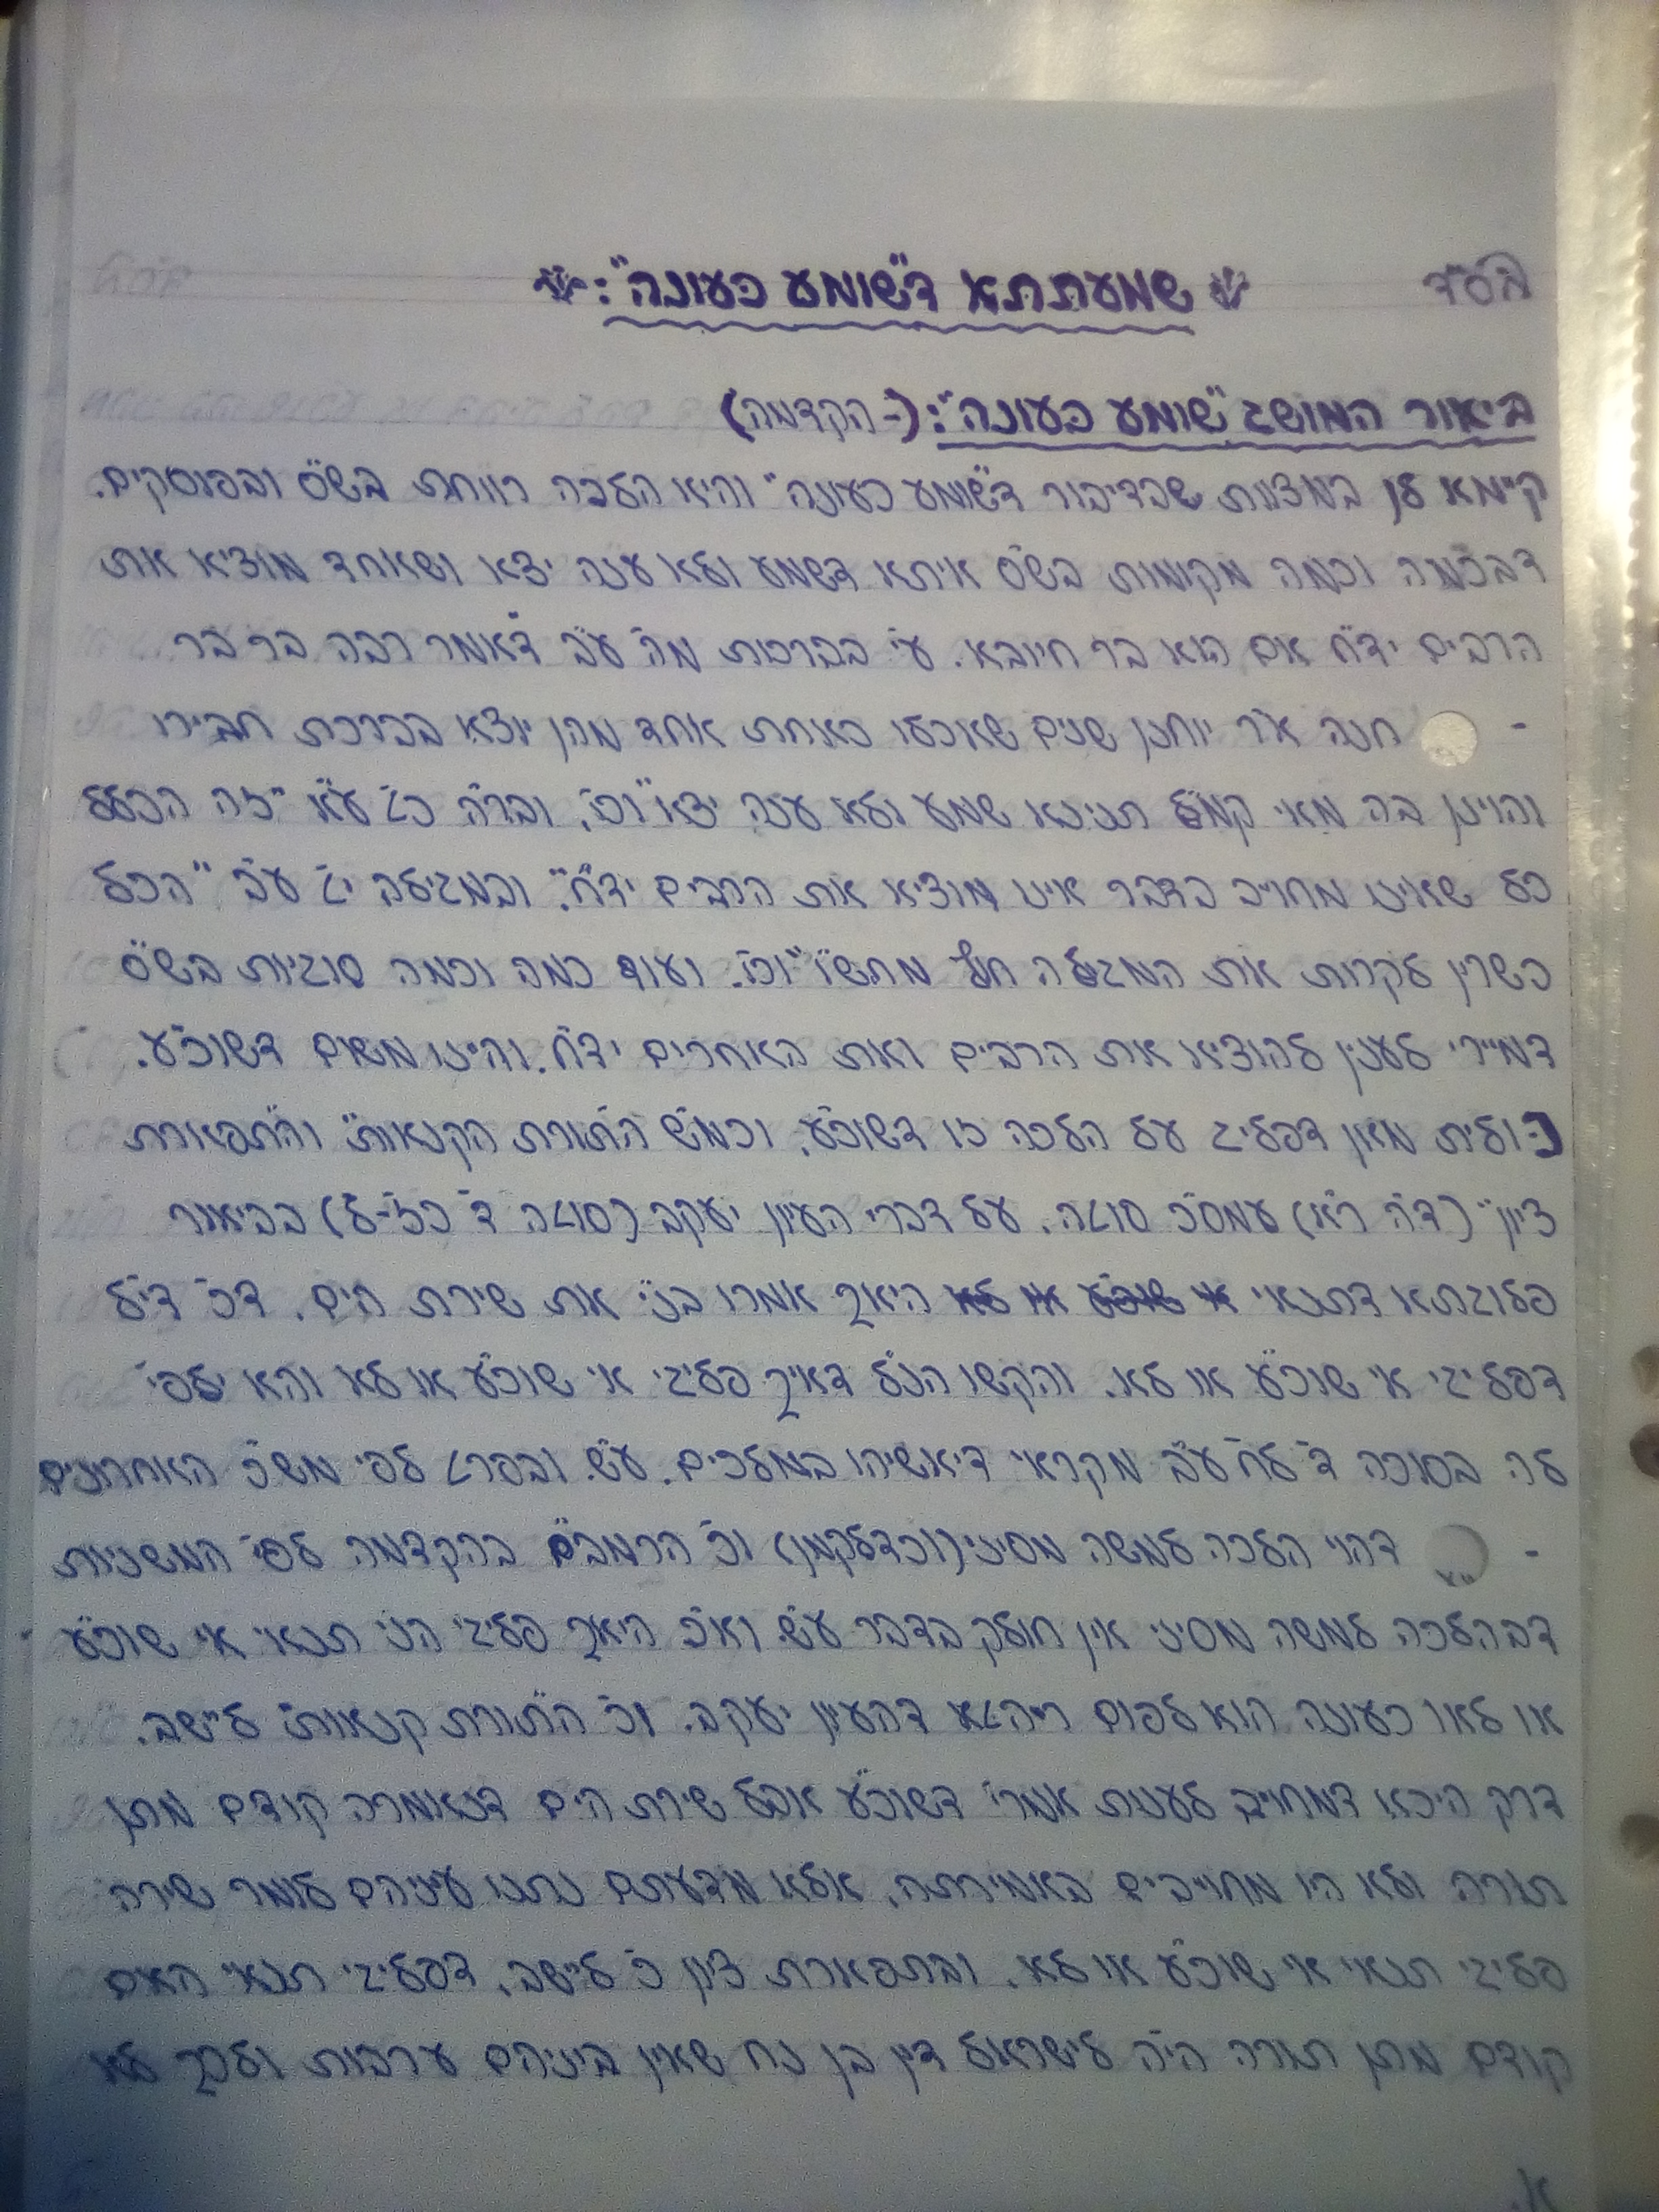 בס"ד
שמעתתא ד"שומע כעונה":
ביאור המושג "שומע כעונה": (- הקדמה)
קיימא לן במצות שבדיבור ד"שומע כעונה" והיא הלכה רווחת בש"ס ובפוסקים.
דבכמה וכמה מקומות בש"ס איתא דשמע ולא ענה יצא ושאחד מוציא את
הרבים יד"ח אם הוא בר חיובא. עי' בברכות מה עב דאמר רבה בר בר
חנה א"ר יוחנן שנים שאכלו כאחת אחד מהן יוצא בברכת חבירו
והוינן בה מאי קמ"ל תנינא שמע ולא ענה יצא" וכו', ובר"ה כט ע"א "זה הכלל
כל שאינו מחויב בדבר אינו מוציא את הרבים יד"ח". ובמגילה יט ע"ב "הכל
כשרין לקרות את המגילה חוץ מחש"ו" וכו'. ועוד כמה וכמה סוגיות בש"ס
דמיירי לענין להוציא את הרבים ואת האחרים יד"ח. והיינו משום דשוכ"ע.
ולית מאן דפליג על הלכה זו דשוכ"ע, וכמ"ש ה"תורת הקנאות" וה"תפארת
ציון" (ד"ה רא) עמס"כ סוטה. על דברי העיון יעקב (סוטה ד' כז-ל) בביאור
פלוגתא דתנאי היאך אמרו בנ"י את שירת הים. דכ' די"ל
דפליגי אי שוכ"ע או לא. והקשו הנ"ל דאיך פליגי אי שוכ"ע או לא והא ילפי'
לה בסוכה ד' לח ע"ב מקראי דיאשיהו במלכים. עש. ובפרט לפי מש"כ האחרונים
דהוי הלכה למשה מסיני (וכדלקמן) וכ' הרמב"ם בהקדמה לפי' המשניות
דבהלכה למשה מסיני אין חולק בדבר עש. וא"כ היאך פליגי הני תנאי אי שוכ"ע
או לאו כעונה הוא לפום ריהטא דהעיון יעקב. וכ' ה"תורת קנאות" ליישב.
דרק היכא דמחויב לענות אמרי' דשוכ"ע אבל שירת הים דנאמרה קודם מתן
תורה ולא היו מחוייבים באמירתה, אלא מדעתם נתנו עיניהם לומר שירה
פליגי תנאי אי שוכ"ע או לא. ובתפארת ציון כ' ליישב. דפליגי תנאי האם
קודם מתן תורה היה לישראל דין בן נח שאין ביניהם ערבות ולכך לא